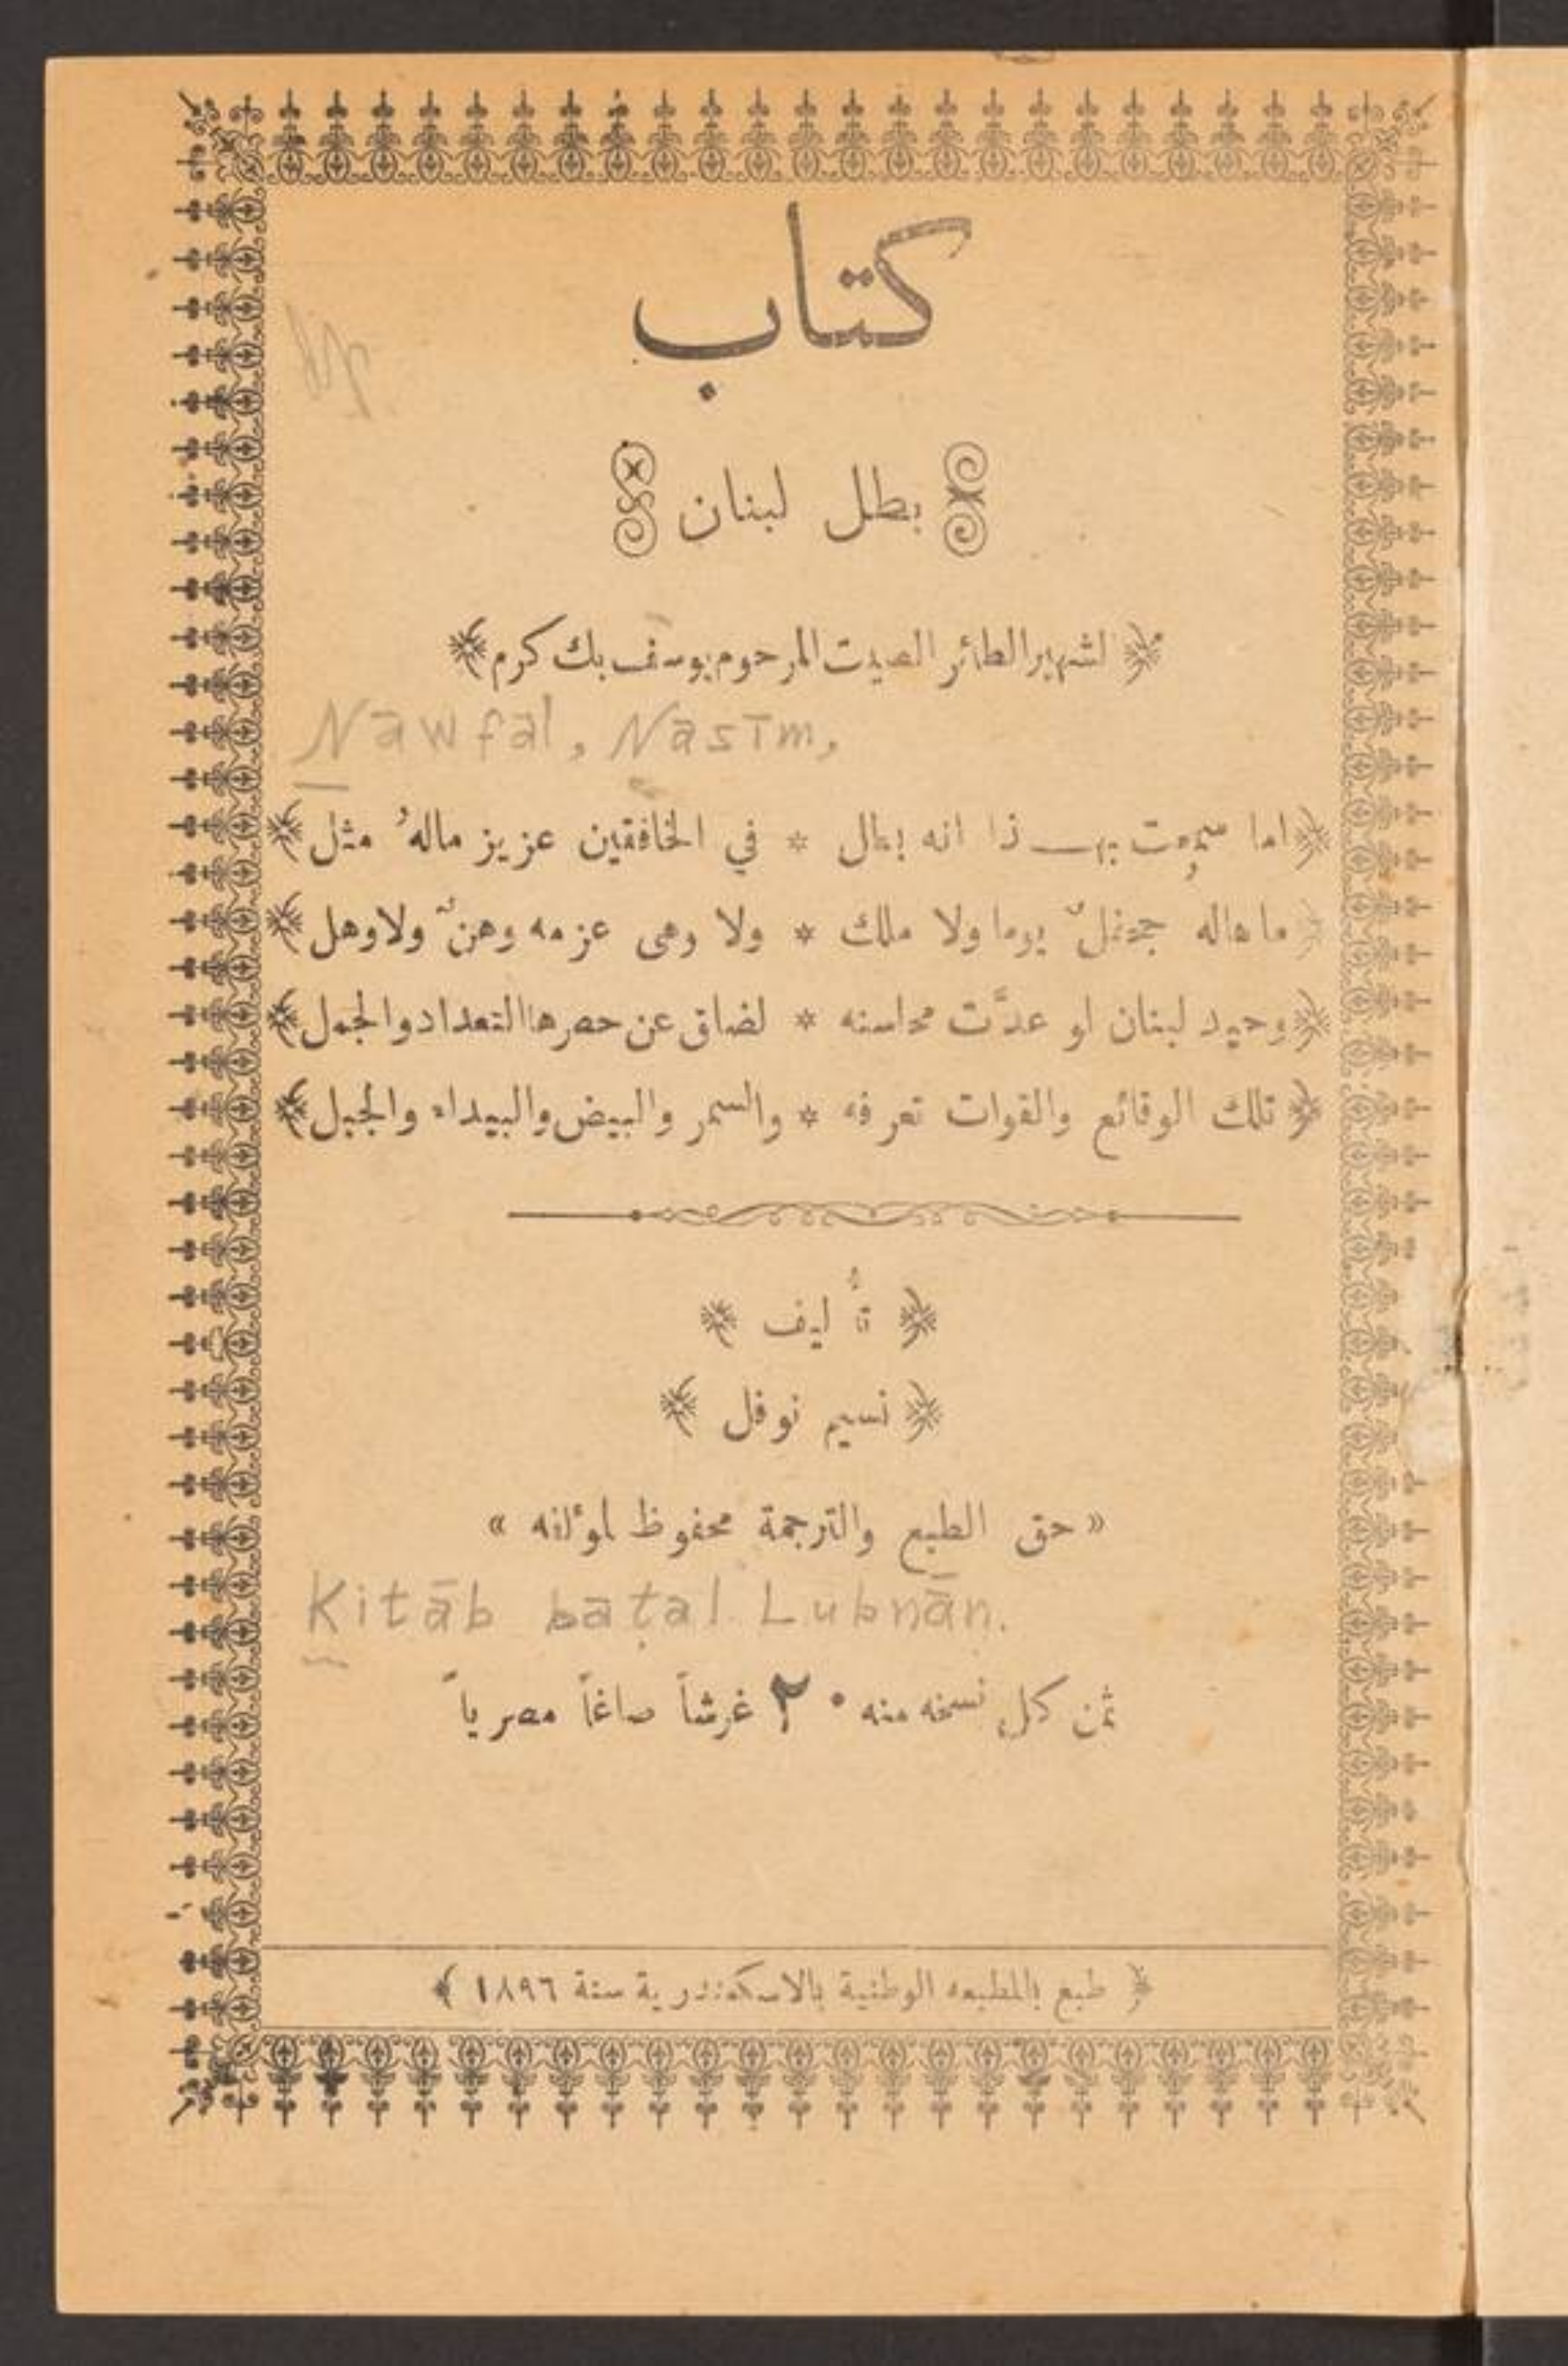 كتاب
بطل لبنان
لشهير الطائر الصيت المرحوم يوسف بك كرم
Nawfal, Nasīm,
اما سمعت بهـــذا انه بطل * في الخافقين عزيز مالهُ مثل
ما هاله جحفلٌ يوما ولا ملك * ولا وهى عزمه وهنٌ ولا وهل
وحيد لبنان لو عدَّت محاسنه * لضاق عن حصرها التعداد والجمل
تلك الوقائع والقوات تعرفه * والسمر والبيض والبيداء والجبل
تأليف
نسيم نوفل
« حق الطبع والترجمة محفوظ لمؤلفه »
Kitāb baṭal Lubnān.
ثمن كل نسخه منه ٢٠ غرشاً صاغاً مصرياً
طبع بالمطبعه الوطنية بالاسكندرية سنة ١٨٩٦